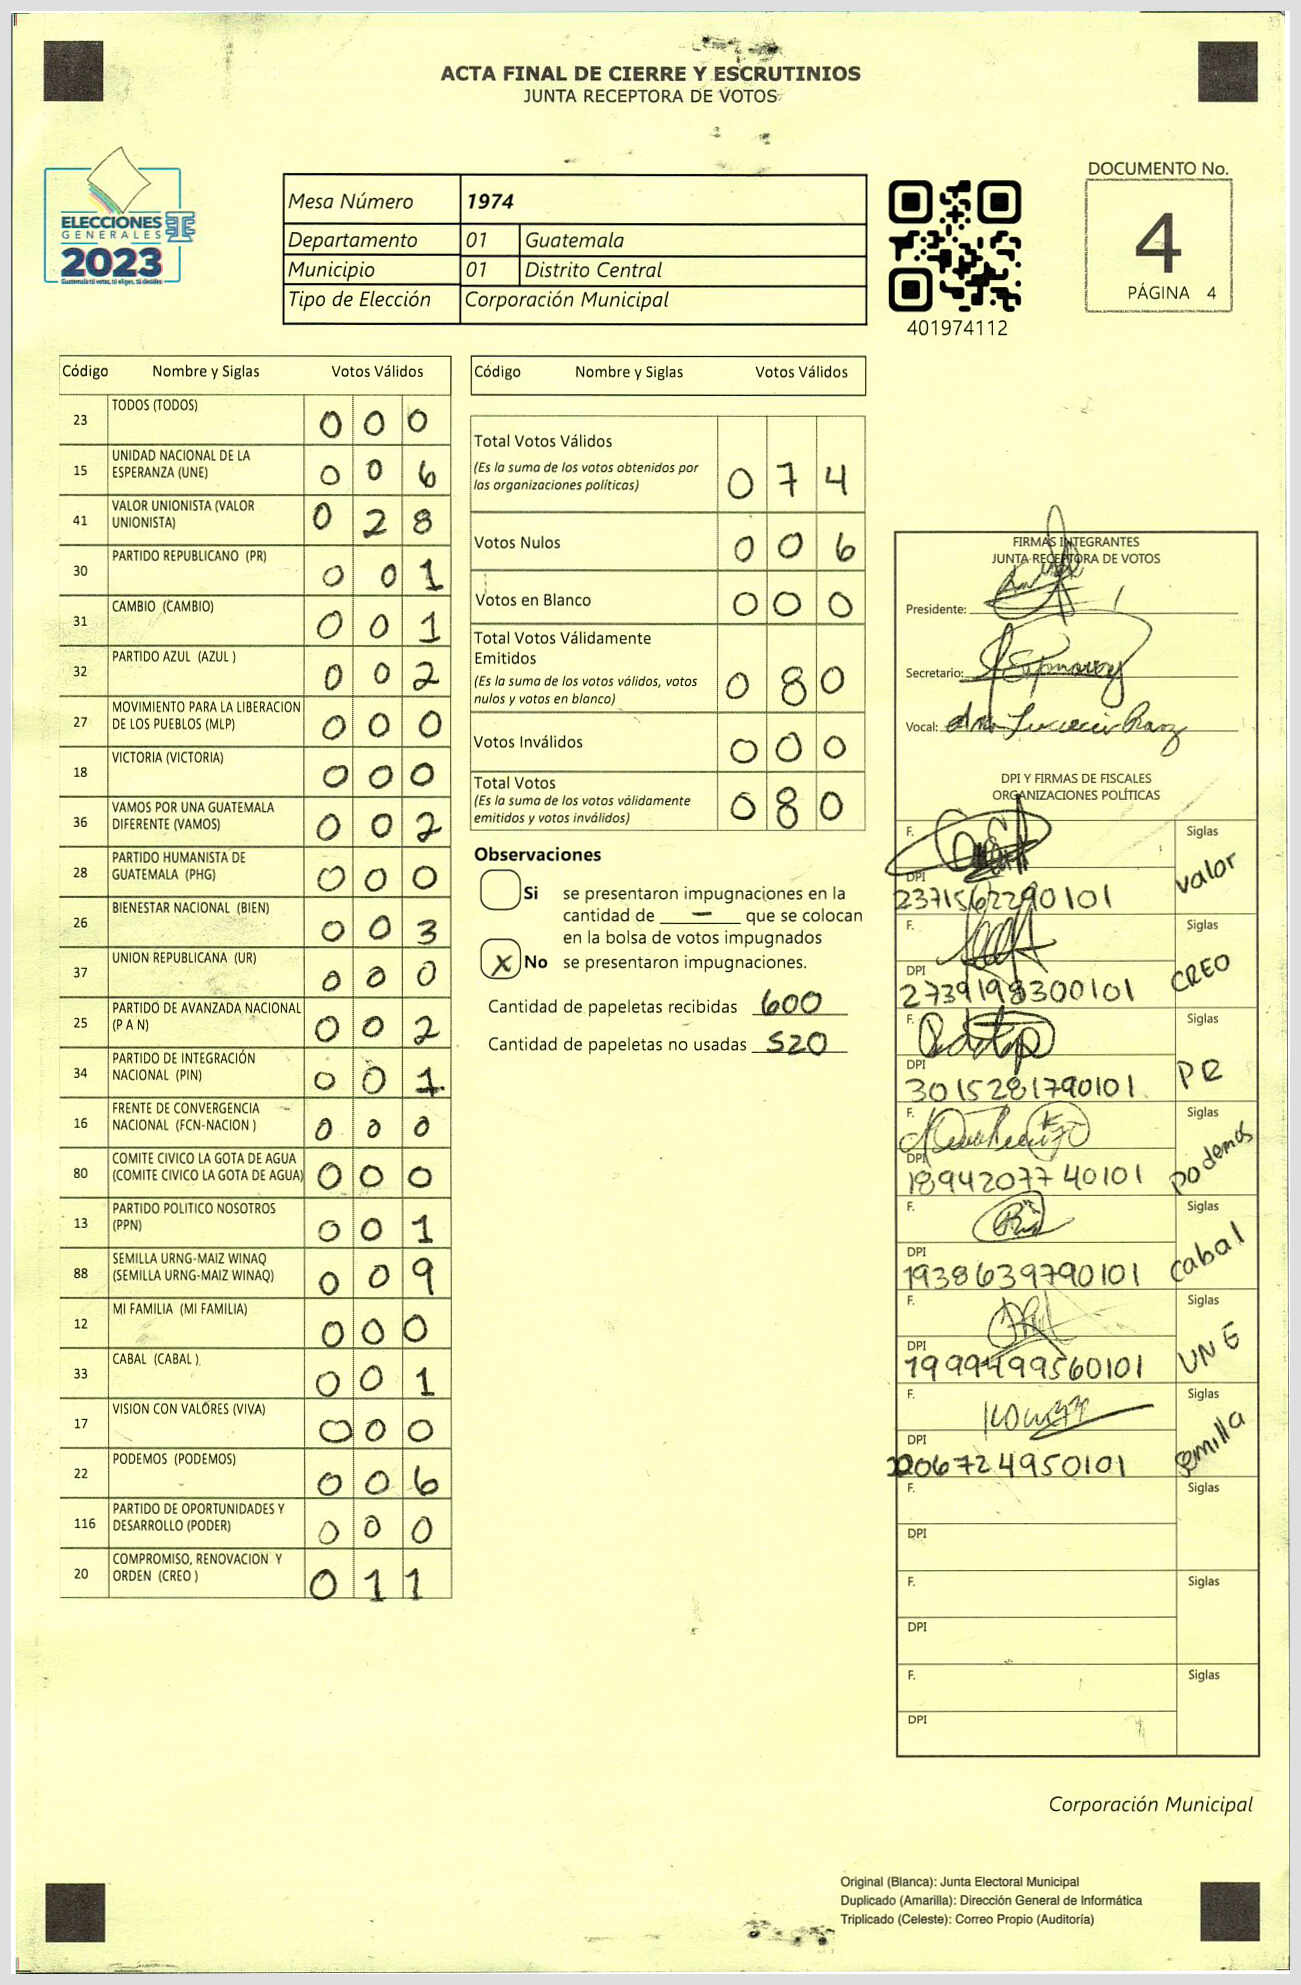 ACTA FINAL DE CIERRE Y ESCRUTINIOS
JUNTA RECEPTORA DE VOTOS
ELECCIONES
GENERALES
2023
Guatemala tú votas, tú eliges, tú decides
Mesa Número 1974
Departamento 01 Guatemala
Municipio 01 Distrito Central
Tipo de Elección Corporación Municipal
401974112
DOCUMENTO No.
4
PÁGINA 4
Código Nombre y Siglas Votos Válidos
23 TODOS (TODOS) 0 0 0
15 UNIDAD NACIONAL DE LA
ESPERANZA (UNE) 0 0 6
41 VALOR UNIONISTA (VALOR
UNIONISTA) 0 2 8
30 PARTIDO REPUBLICANO (PR) 0 0 1
31 CAMBIO (CAMBIO) 0 0 1
32 PARTIDO AZUL (AZUL ) 0 0 2
27 MOVIMIENTO PARA LA LIBERACION
DE LOS PUEBLOS (MLP) 0 0 0
18 VICTORIA (VICTORIA) 0 0 0
36 VAMOS POR UNA GUATEMALA
DIFERENTE (VAMOS) 0 0 2
28 PARTIDO HUMANISTA DE
GUATEMALA (PHG) 0 0 0
26 BIENESTAR NACIONAL (BIEN) 0 0 3
37 UNION REPUBLICANA (UR) 0 0 0
25 PARTIDO DE AVANZADA NACIONAL
(P A N) 0 0 2
34 PARTIDO DE INTEGRACIÓN
NACIONAL (PIN) 0 0 1
16 FRENTE DE CONVERGENCIA
NACIONAL (FCN-NACION ) 0 0 0
80 COMITE CIVICO LA GOTA DE AGUA
(COMITE CIVICO LA GOTA DE AGUA) 0 0 0
13 PARTIDO POLITICO NOSOTROS
(PPN) 0 0 1
88 SEMILLA URNG-MAIZ WINAQ
(SEMILLA URNG-MAIZ WINAQ) 0 0 9
12 MI FAMILIA (MI FAMILIA) 0 0 0
33 CABAL (CABAL ) 0 0 1
17 VISION CON VALORES (VIVA) 0 0 0
22 PODEMOS (PODEMOS) 0 0 6
116 PARTIDO DE OPORTUNIDADES Y
DESARROLLO (PODER) 0 0 0
20 COMPROMISO, RENOVACION Y
ORDEN (CREO ) 0 1 1
Código Nombre y Siglas Votos Válidos
Total Votos Válidos
(Es la suma de los votos obtenidos por
las organizaciones políticas) 0 7 4
Votos Nulos 0 0 6
Votos en Blanco 0 0 0
Total Votos Válidamente
Emitidos
(Es la suma de los votos válidos, votos
nulos y votos en blanco) 0 8 0
Votos Inválidos 0 0 0
Total Votos
(Es la suma de los votos válidamente
emitidos y votos inválidos) 0 8 0
Observaciones
Si se presentaron impugnaciones en la
cantidad de — que se colocan
en la bolsa de votos impugnados
X No se presentaron impugnaciones.
Cantidad de papeletas recibidas 600
Cantidad de papeletas no usadas 520
FIRMAS INTEGRANTES
JUNTA RECEPTORA DE VOTOS
Presidente:
Secretario:
Vocal:
DPI Y FIRMAS DE FISCALES
ORGANIZACIONES POLÍTICAS
F. Siglas
valor
DPI
2371562290101
F. Siglas
CREO
DPI
2739198300101
F. Siglas
PR
DPI
3015281790101
F. Siglas
podemos
DPI
1894207740101
F. Siglas
cabal
DPI
1938639790101
F. Siglas
UNE
DPI
1999499560101
F. Siglas
semilla
DPI
206724950101
F. Siglas
DPI
F. Siglas
DPI
F. Siglas
DPI
Corporación Municipal
Original (Blanca): Junta Electoral Municipal
Duplicado (Amarilla): Dirección General de Informática
Triplicado (Celeste): Correo Propio (Auditoría)